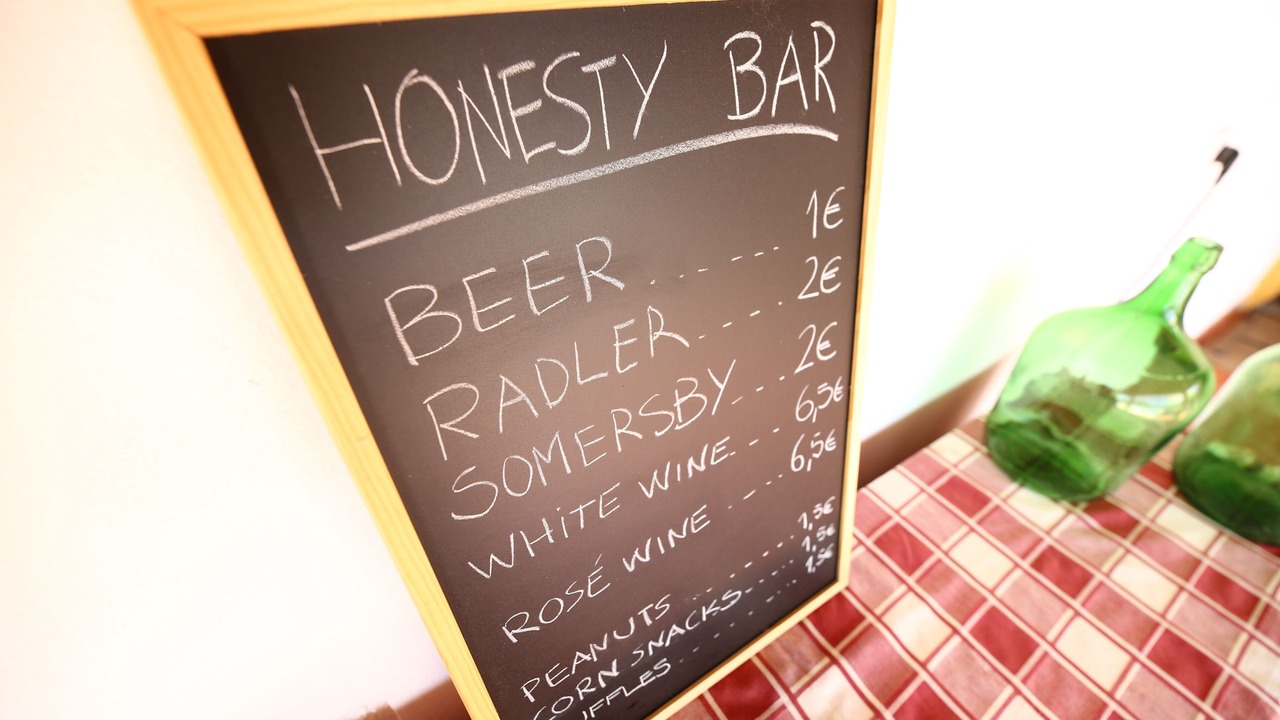 HONESTY BAR
BEER . . - - - - 1€
RADLER . - - - - 2€
SOMERSBY - - - 2€
WHiTE WINE . - - 6,5€
ROSÉ WINE - - - 6,5€
PEANUTS . . - - - . . . . 1,5€
CORN SNACKS - . . . . . 1,5€
1,5€